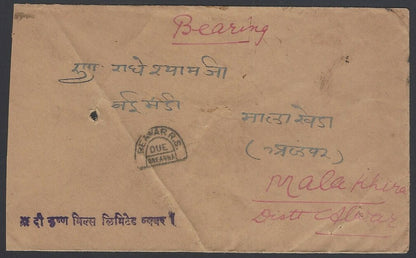 Bearing
राधेश्यामजी
नई मंडी
मालाखेडा
(अलवर)
Malakhira
Distt Alwar
BEAWAR R.S.
DUE
ONE ANNA
दी कृष्ण मिल्स लिमिटेड ब्यावर